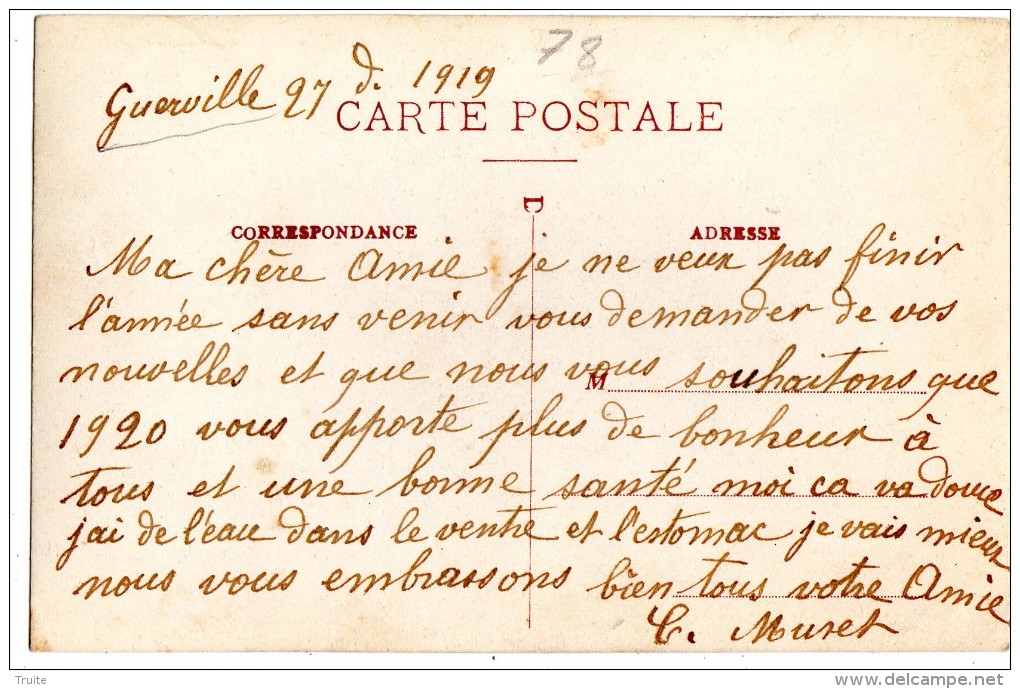 78
Guerville 27 d. 1919
CARTE POSTALE
D
CORRESPONDANCE
ADRESSE
Ma chère Amie je ne veux pas finir
l'année sans venir vous demander de vos
nouvelles et que nous vous souhaitons que
M
1920 vous apporte plus de bonheur à
tous et une bonne santé moi ca va douce
jai de l'eau dans le ventre et l'estomac je vais mieux
nous vous embrassons bien tous votre Amie
C. Muret
Truite
delcampe.net